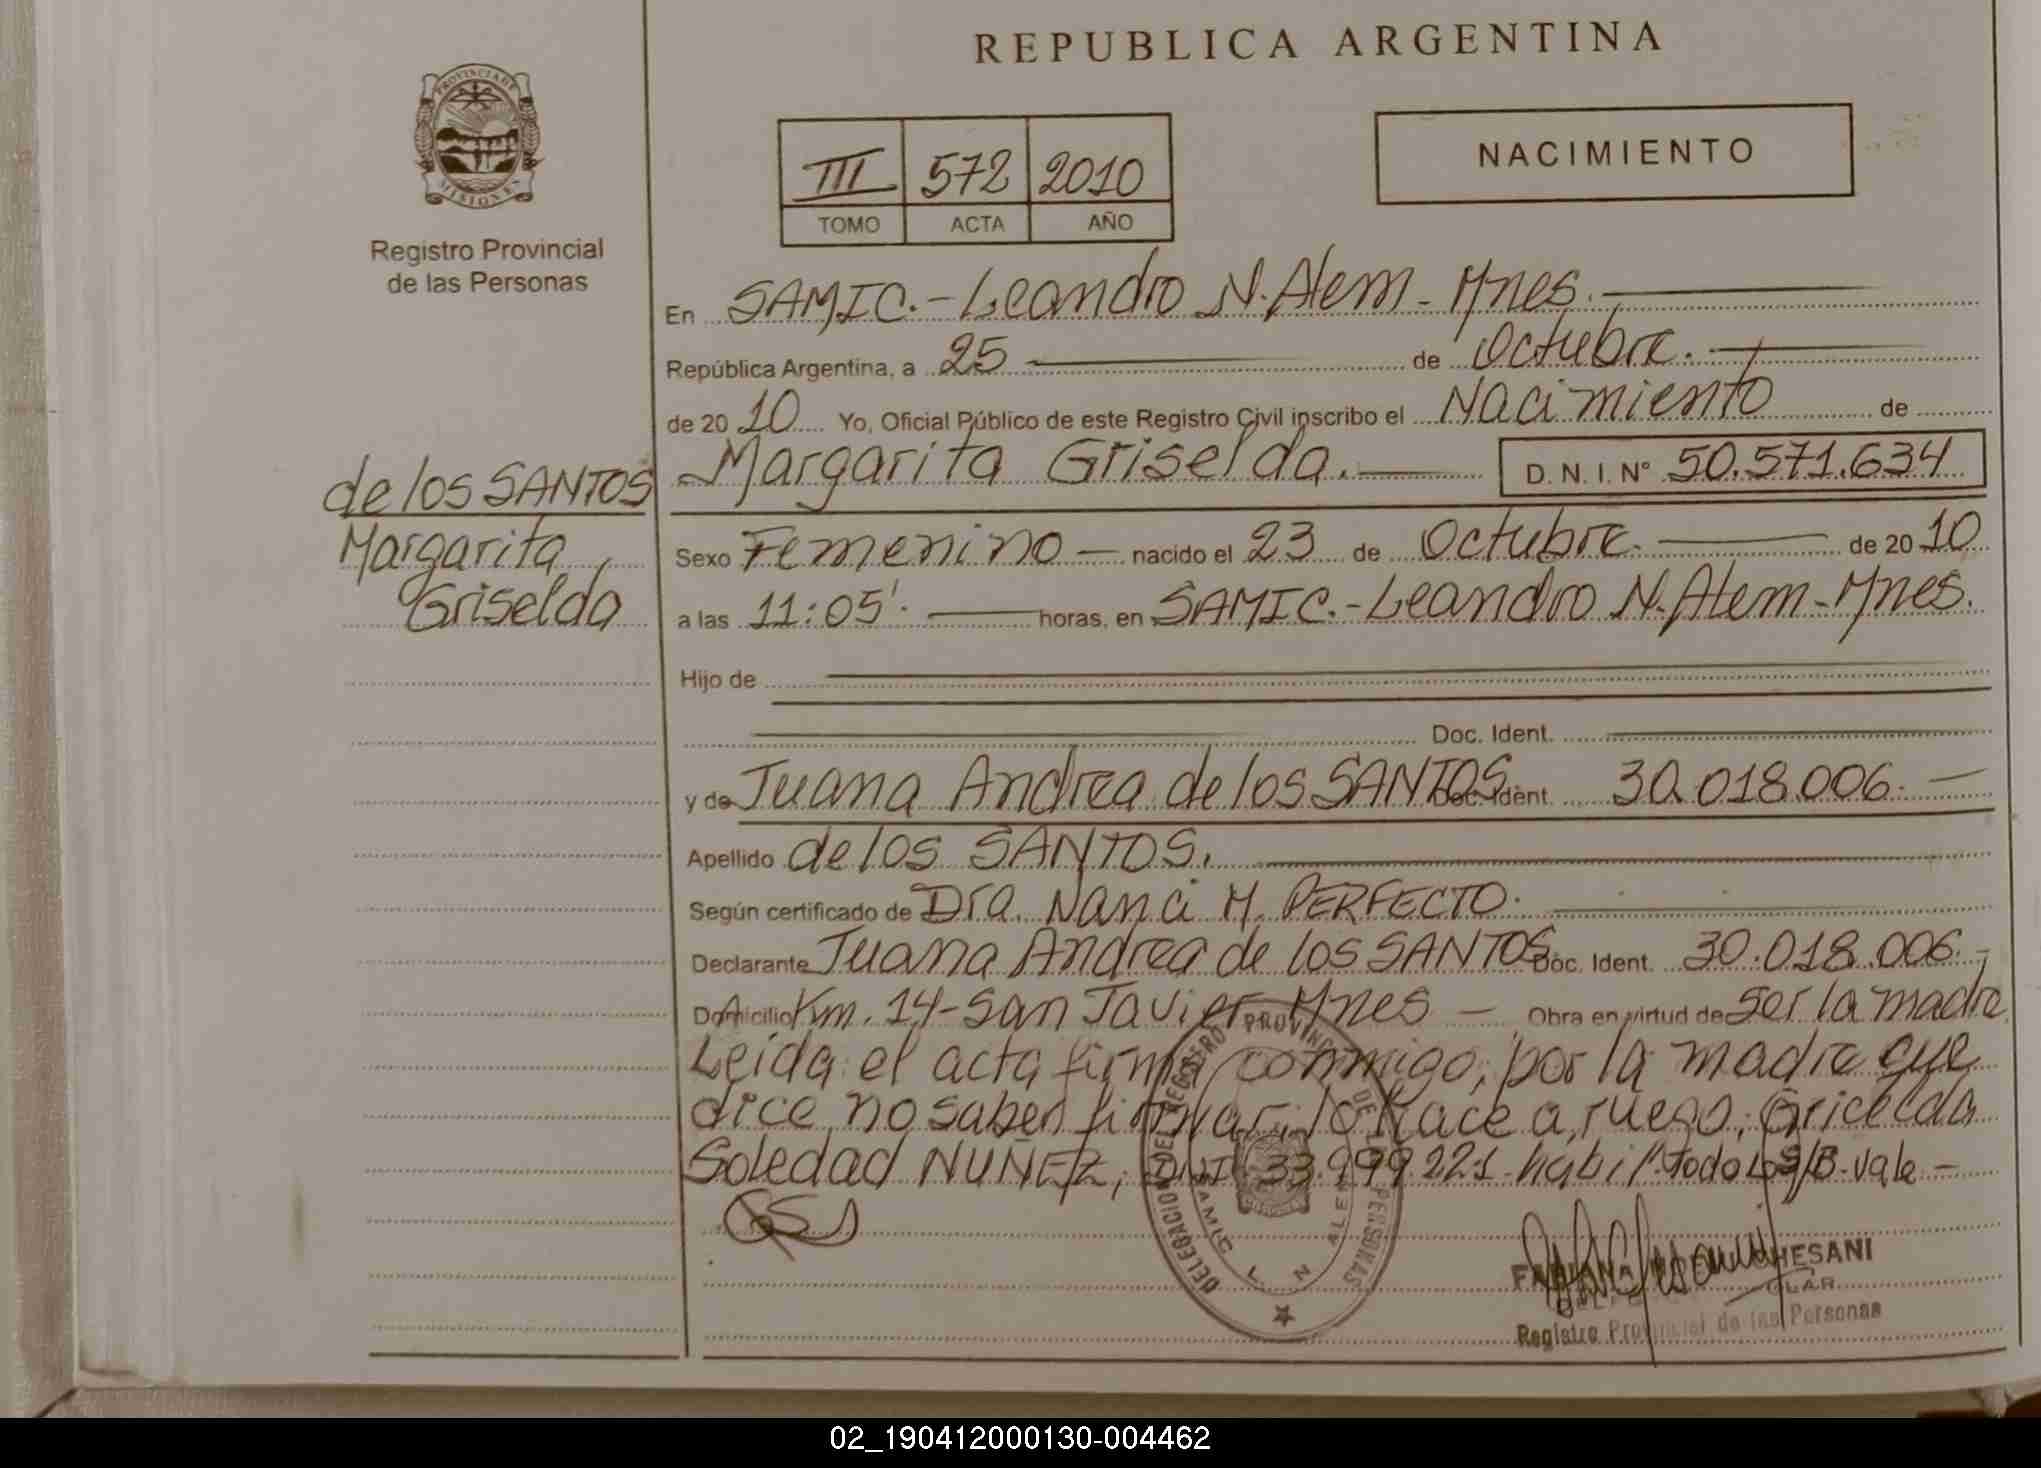 REPUBLICA ARGENTINA
PROVINCIA DE
MISIONES
Registro Provincial
de las Personas
III 572 2010
TOMO ACTA AÑO
NACIMIENTO
En SAMIC.-Leandro N. Alem - Mnes.
República Argentina, a 25 de Octubre.
de 2010 Yo, Oficial Público de este Registro Civil inscribo el Nacimiento de
de los SANTOS
Margarita
Griselda
Margarita Griselda. D. N. I. Nº 50.571.634
Sexo Femenino - nacido el 23 de Octubre. de 2010
a las 11:05'. horas, en SAMIC.-Leandro N. Alem - Mnes.
Hijo de
Doc. Ident.
y de Juana Andrea de los SANTOS Doc. Ident. 30.018.006.-
Apellido de los SANTOS.
Según certificado de Dra. Nanci M. PERFECTO.
Declarante Juana Andrea de los SANTOS Doc. Ident. 30.018.006.-
Domicilio Km. 14-San Javier Mnes - Obra en virtud de ser la madre
Leida el acta firma conmigo, por la madre que
dice no saber firmar, lo hace a ruego, Gricelda
Soledad NUÑEZ, DNI 33.999.221 habil Todo Lo S/B. vale -
DELEGACION DEL REGISTRO PROVINCIAL DE LAS PERSONAS
SAMIC L. N. ALEM
FABIANA CHESANI
Registro Provincial de las Personas
02_190412000130-004462